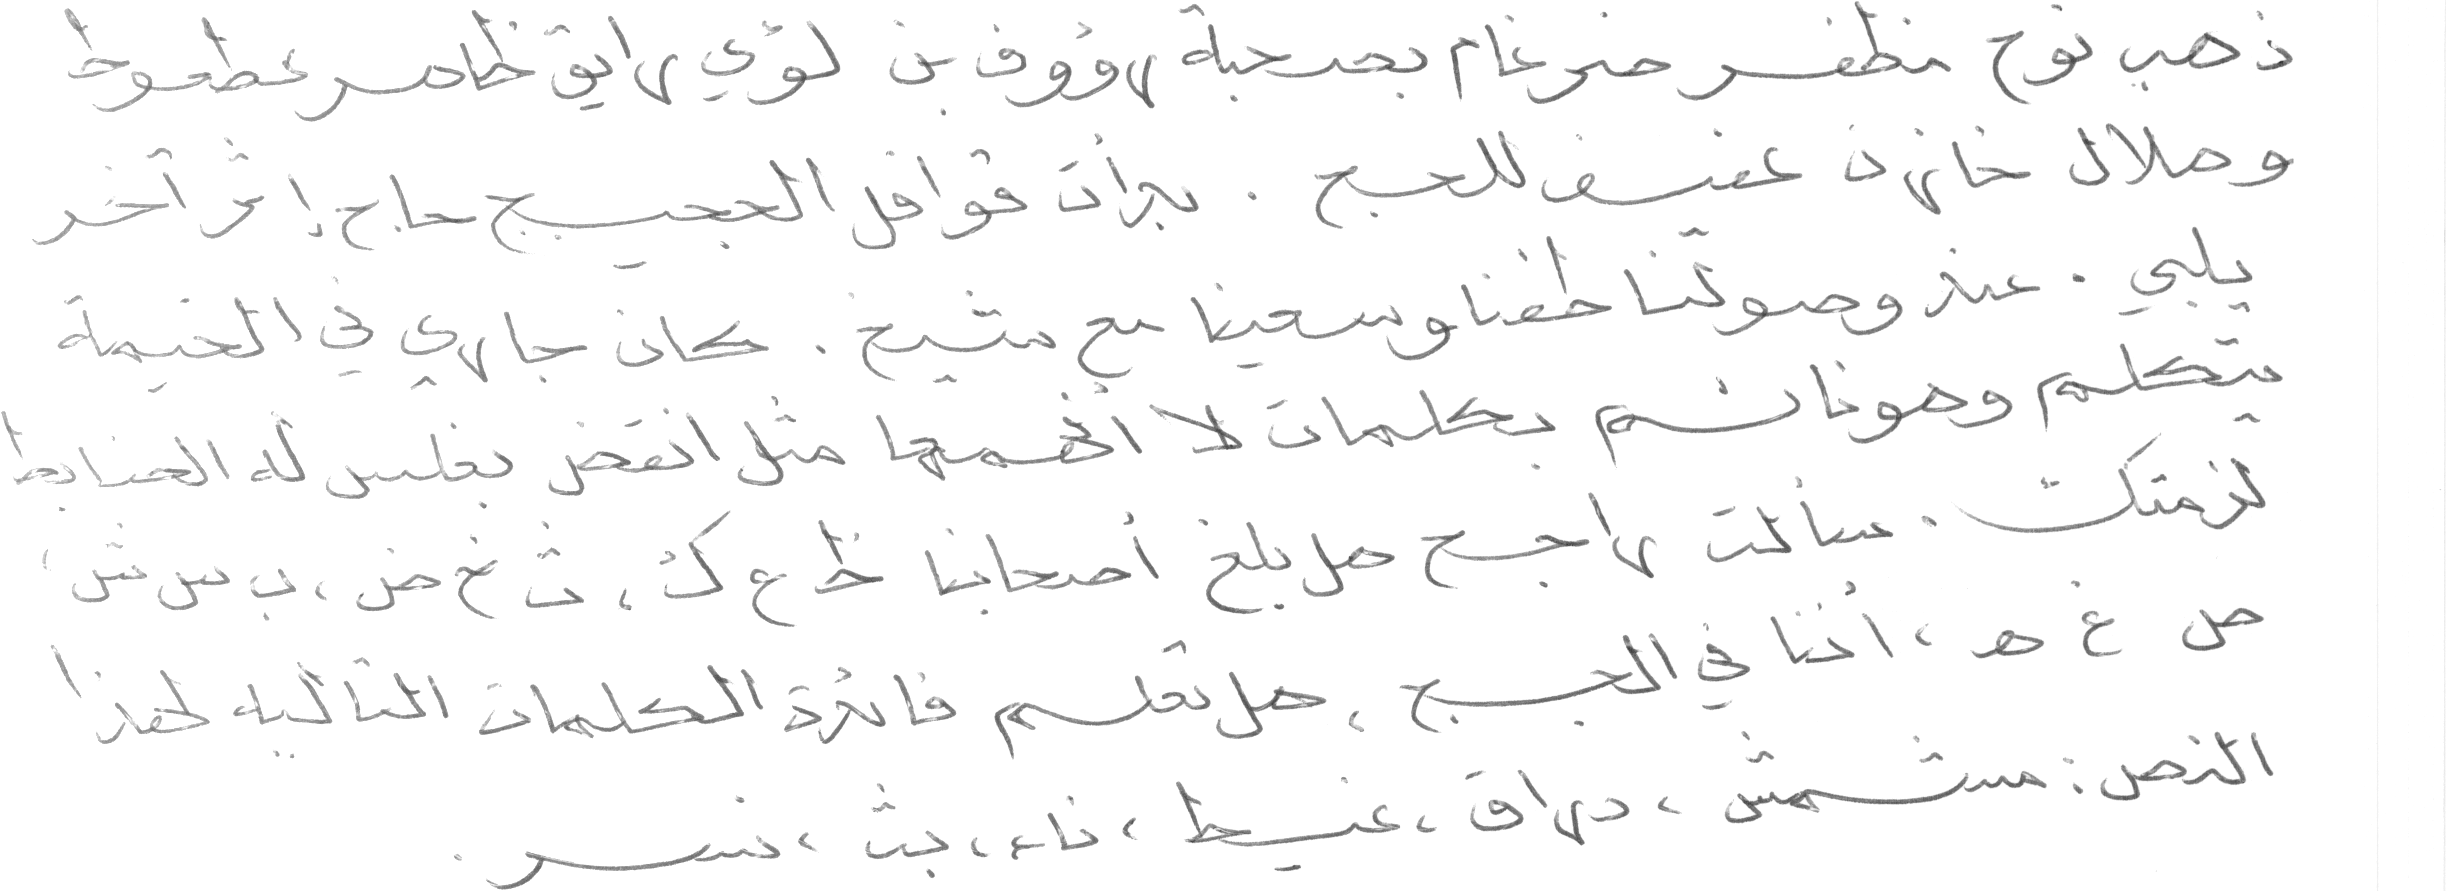 ذهب نوح مظفر ضرغام بصحبة رؤوف بن لؤي رايق ظافر عطعوط
وهلال خازن عفيف للحج . بدأت قوافل الحجيج حاج إثر آخر
يلبي . عند وصولنا طفنا وسعينا مع مشيخ . كان جاري في الخيمة
يتكلم وهو نائم بكلمات لا أفهمها مثل انقض بغلس له الضابط
لزمتك . سألت راجح هل بلغ أصحابنا ظ ع ك ، ث غ ض ، ب س ش ،
ص غ ه ، أننا في الحج ، هل تعلم فائدة الكلمات التاليه لهذا
النص : مشمش ، دراق ، غيط ، ناء ، بث ، نسر .